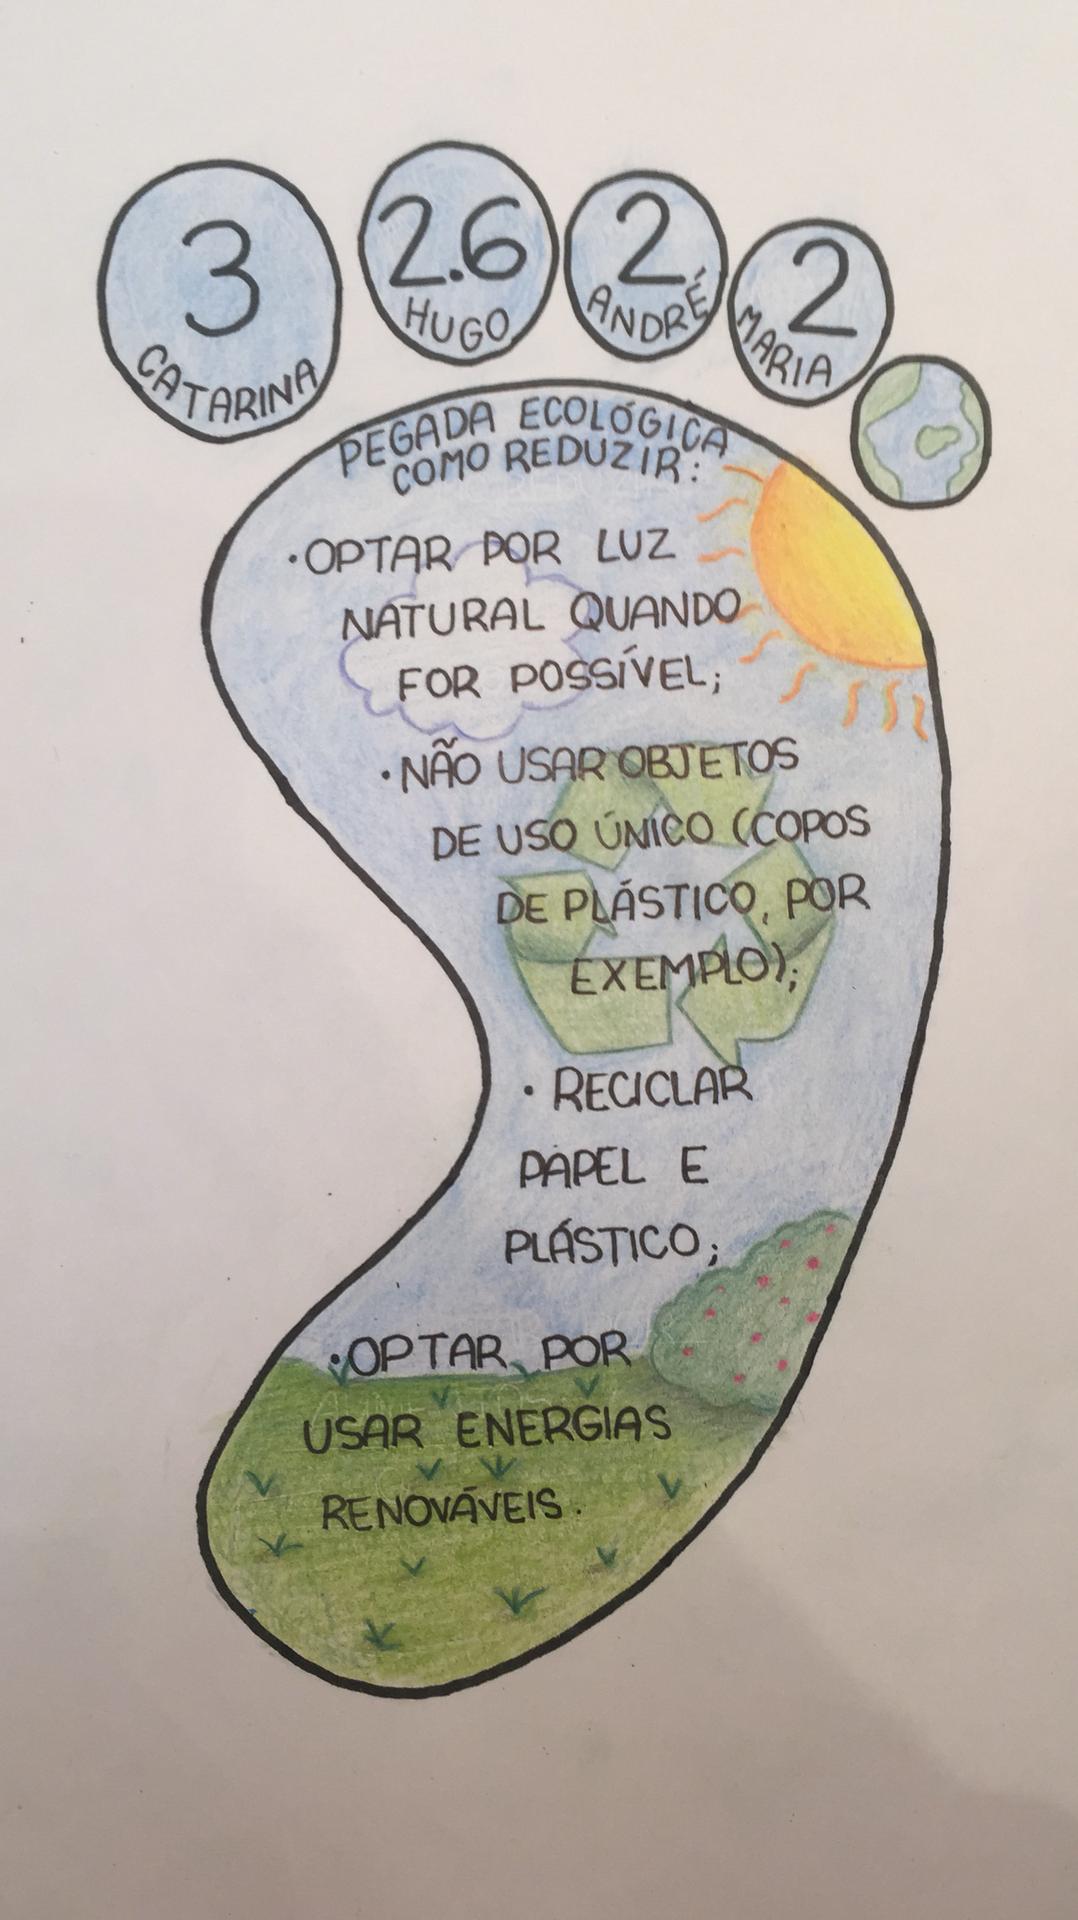 3
CATARINA
2.6
HUGO
2
ANDRÉ
2
MARIA
PEGADA ECOLÓGICA
COMO REDUZIR:
·OPTAR POR LUZ
NATURAL QUANDO
FOR POSSÍVEL;
·NÃO USAR OBJETOS
DE USO ÚNICO (COPOS
DE PLÁSTICO, POR
EXEMPLO);
· RECICLAR
PAPEL E
PLÁSTICO;
·OPTAR POR
USAR ENERGIAS
RENOVÁVEIS.